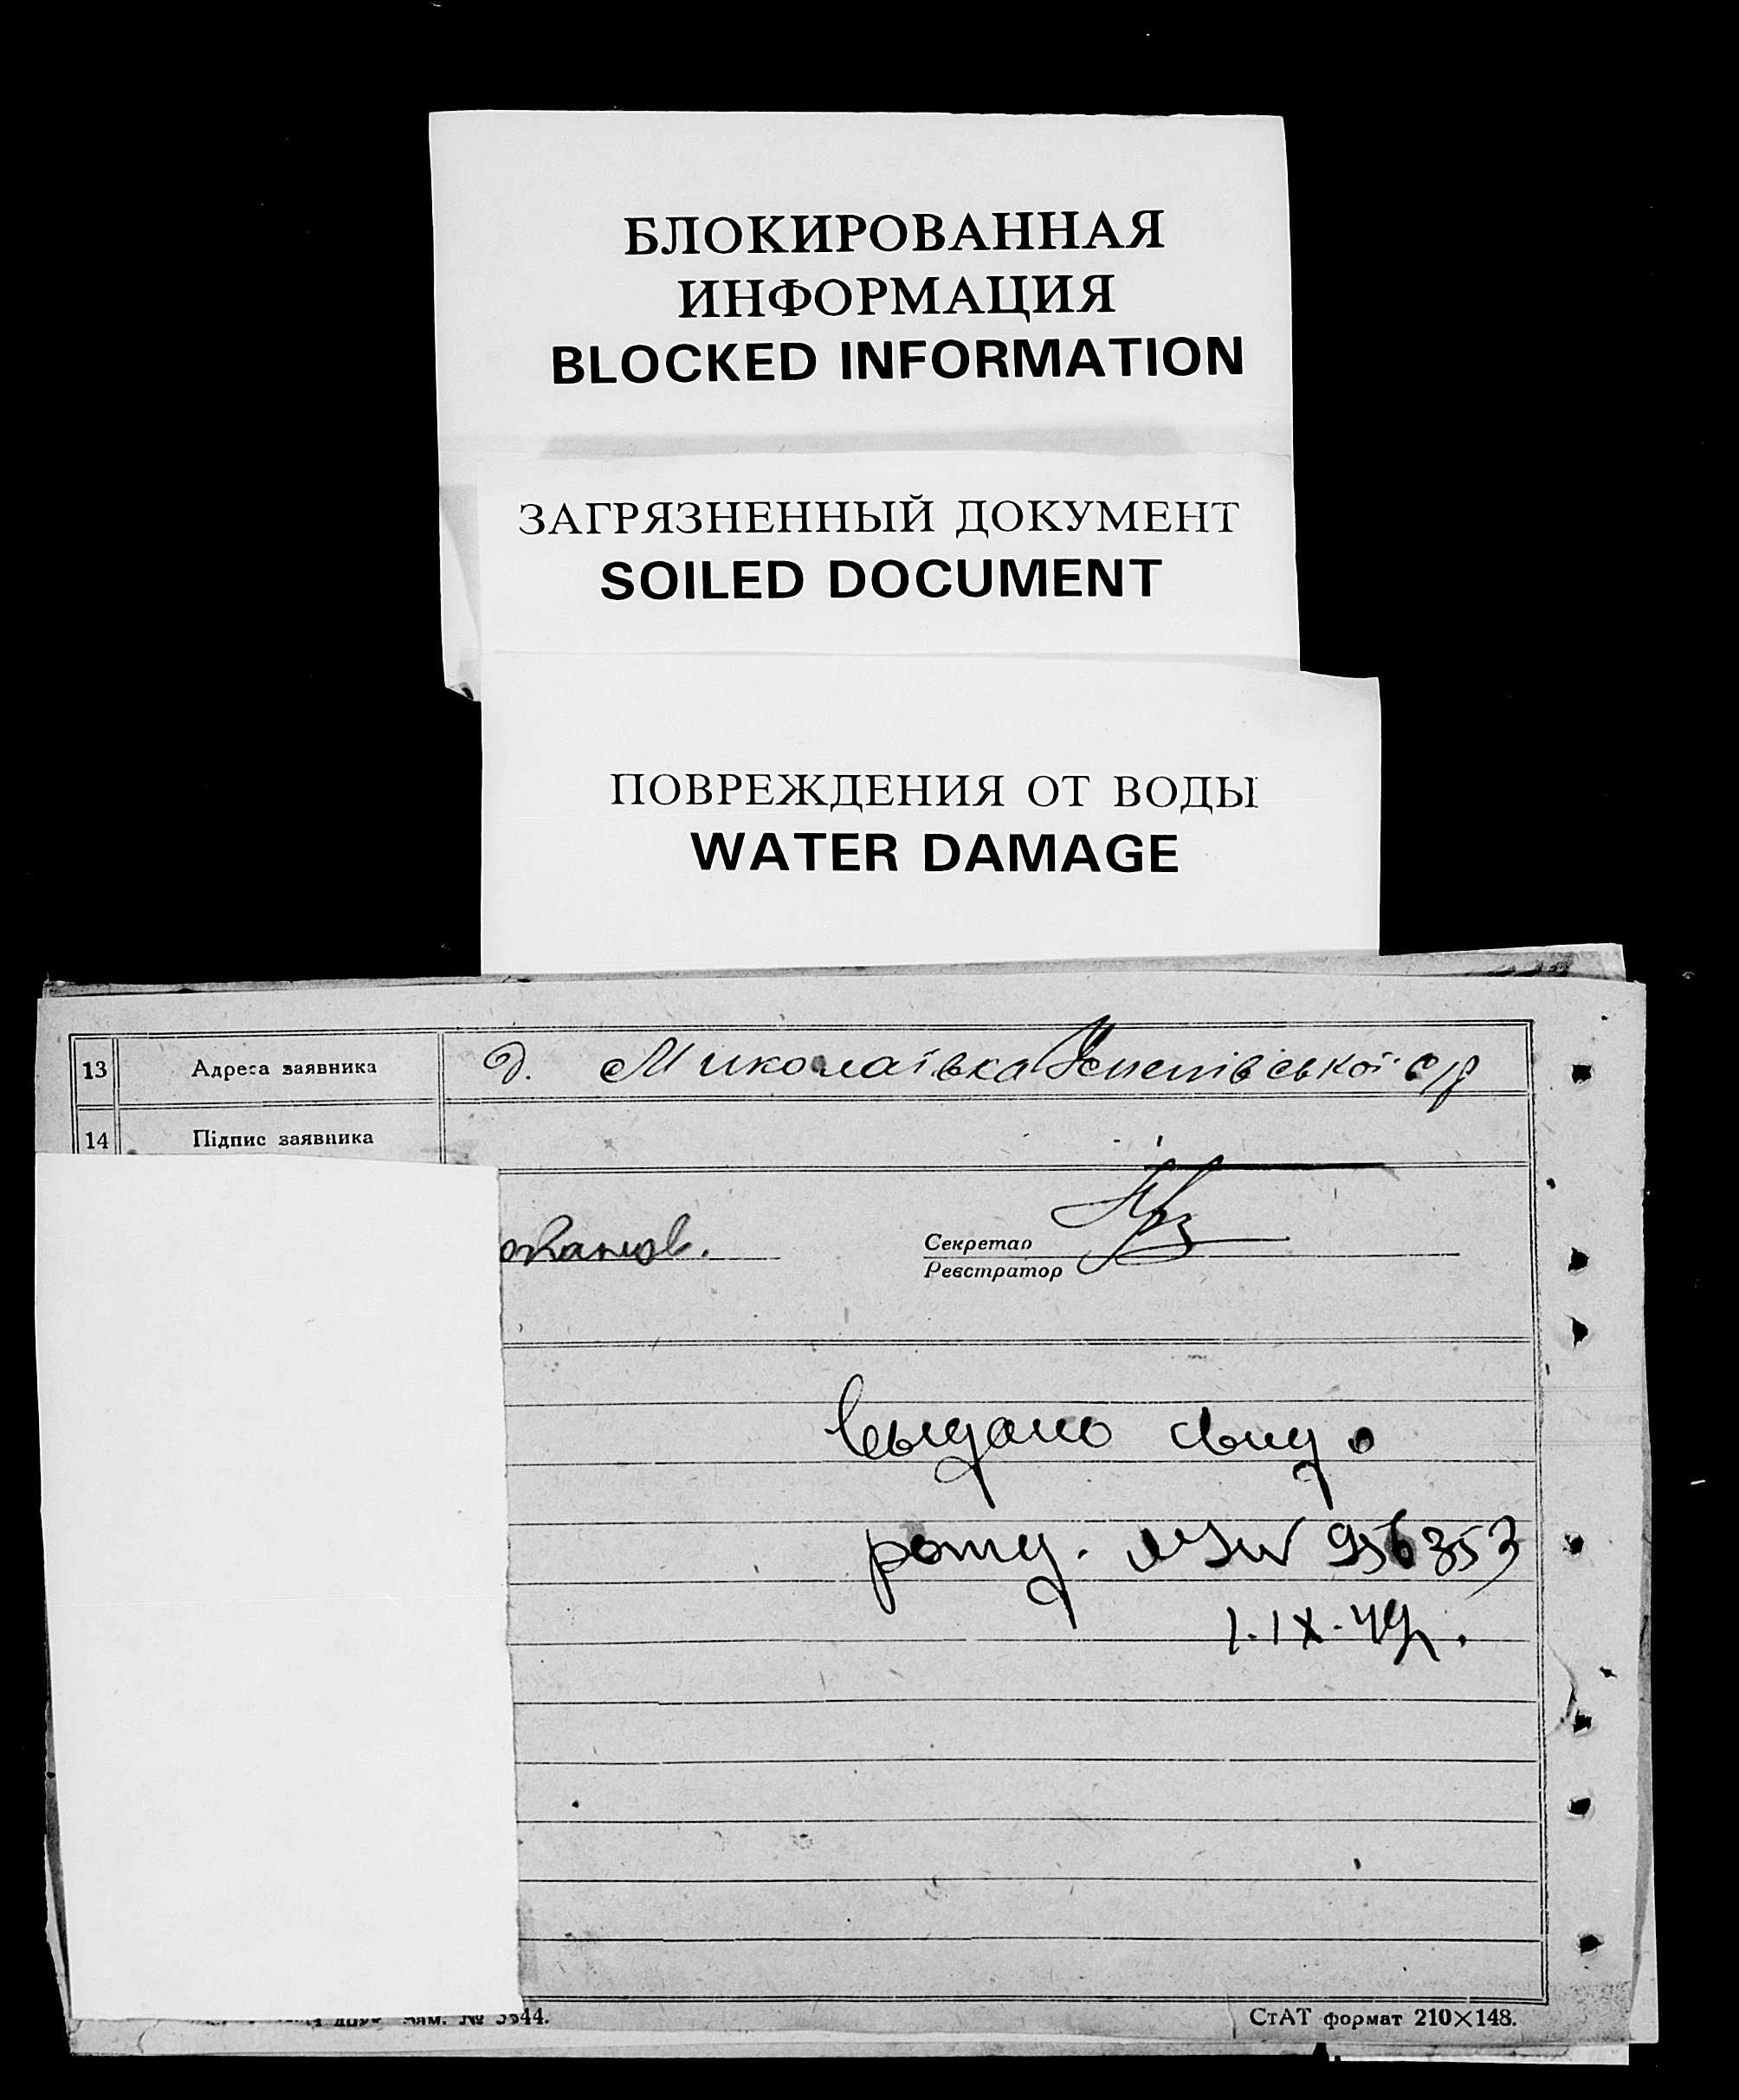 БЛОКИРОВАННАЯ
ИНФОРМАЦИЯ
BLOCKED INFORMATION
ЗАГРЯЗНЕННЫЙ ДОКУМЕНТ
SOILED DOCUMENT
ПОВРЕЖДЕНИЯ ОТ ВОДЫ
WATER DAMAGE
13 Адреса заявника д. Миколаївка Успенівської с/р
14 Підпис заявника
Секретар
Реєстратор
выдано свид.
956353
1.IX.49г.
№ 3544.
СтАТ формат 210×148.